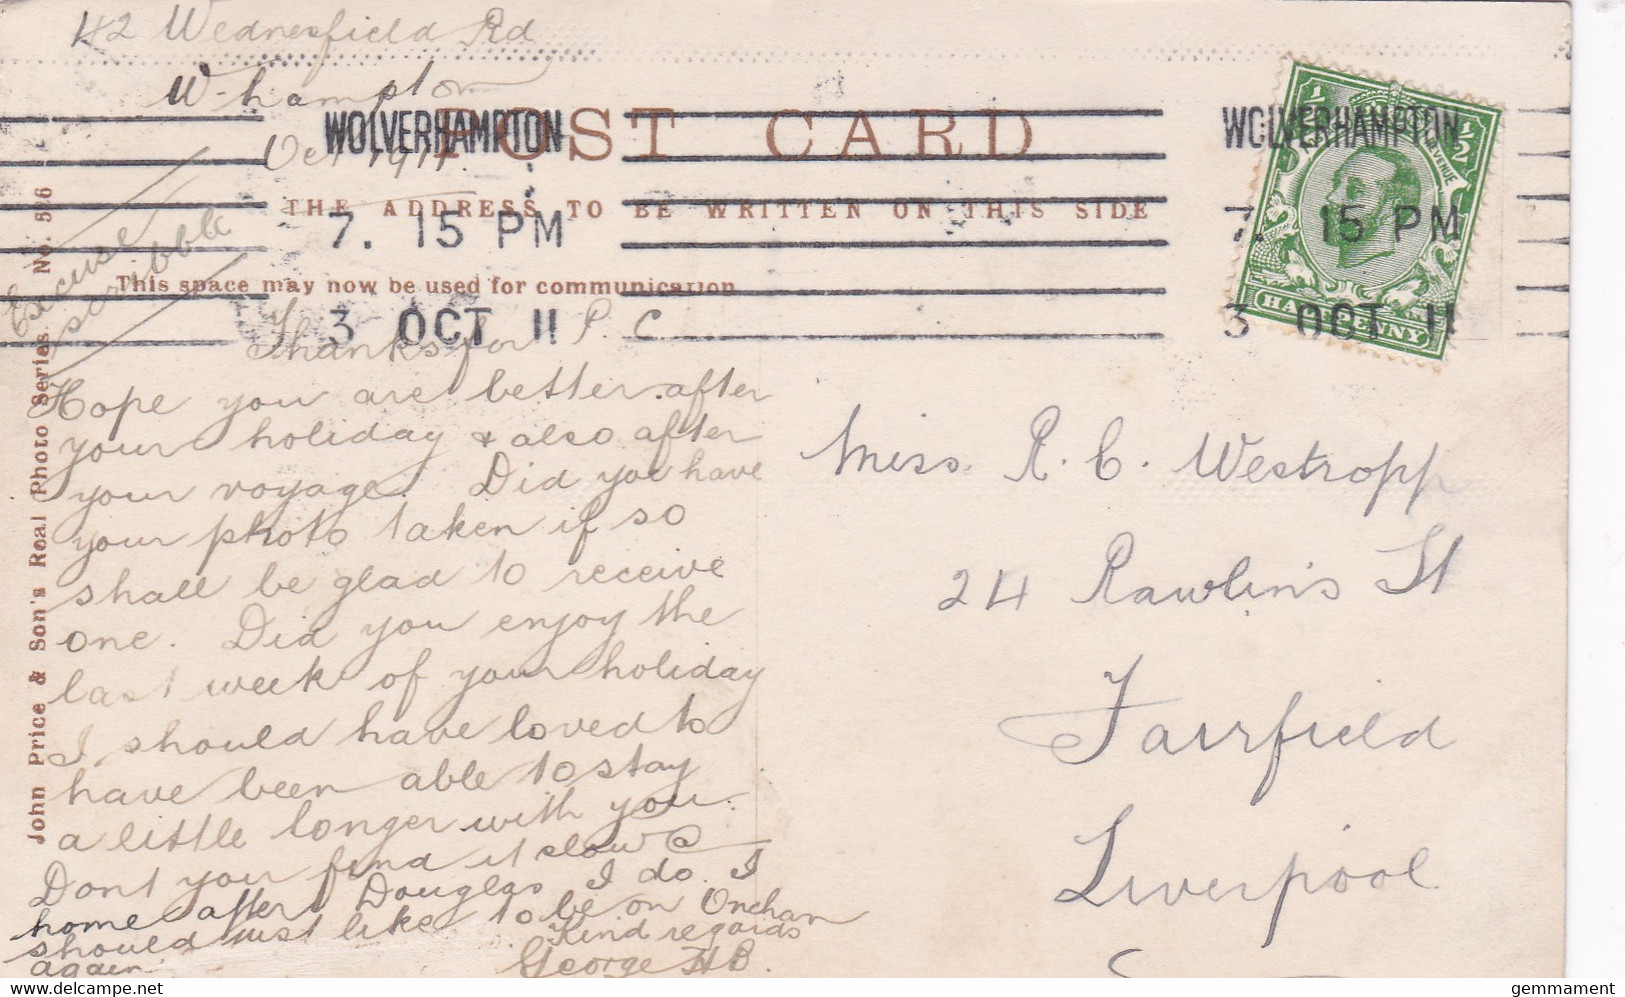 42 Wednesfield Rd
W-hampton
Oct 1911.
POST CARD
THE ADDRESS TO BE WRITTEN ON THIS SIDE
This space may now be used for communication
WOLVERHAMPTON
7. 15 PM
3 OCT 11
WOLVERHAMPTON
7. 15 PM
3 OCT 11
HALFPENNY
Excuse
scribble
John Price & Son's Real Photo Series. No. 516
Thanks for P. C
Hope you are better after
your holiday & also after
your voyage. Did you have
your photo taken if so
shall be glad to receive
one. Did you enjoy the
last week of your holiday
I should have loved to
have been able to stay
a little longer with you.
Dont you find it slow @
home after Douglas I do. I
should just like to be on Onchan
again.
Kind regards
George H B.
Miss. R. C. Westropp
24 Rawlins St
Fairfield
Liverpool
www.delcampe.net
gemmament